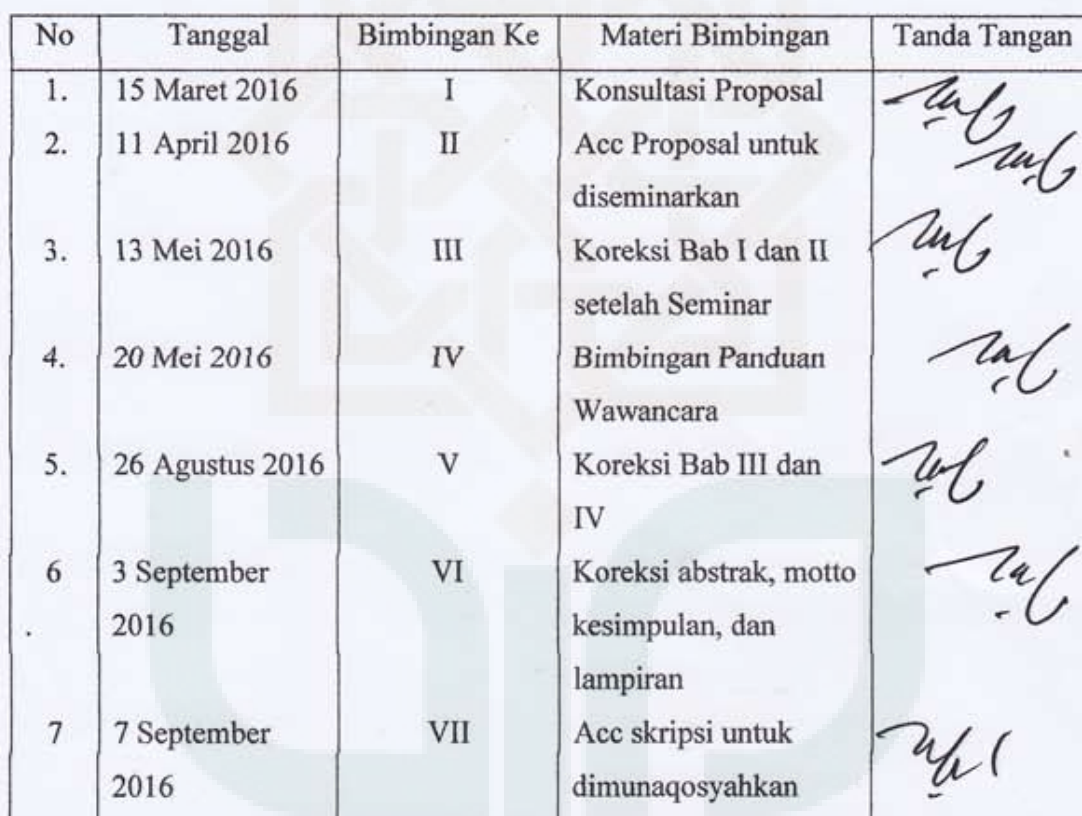 No Tanggal Bimbingan Ke Materi Bimbingan Tanda Tangan
1. 15 Maret 2016 I Konsultasi Proposal
2. 11 April 2016 II Acc Proposal untuk
diseminarkan
3. 13 Mei 2016 III Koreksi Bab I dan II
setelah Seminar
4. 20 Mei 2016 IV Bimbingan Panduan
Wawancara
5. 26 Agustus 2016 V Koreksi Bab III dan
IV
6 3 September VI Koreksi abstrak, motto
. 2016 kesimpulan, dan
lampiran
7 7 September VII Acc skripsi untuk
2016 dimunaqosyahkan